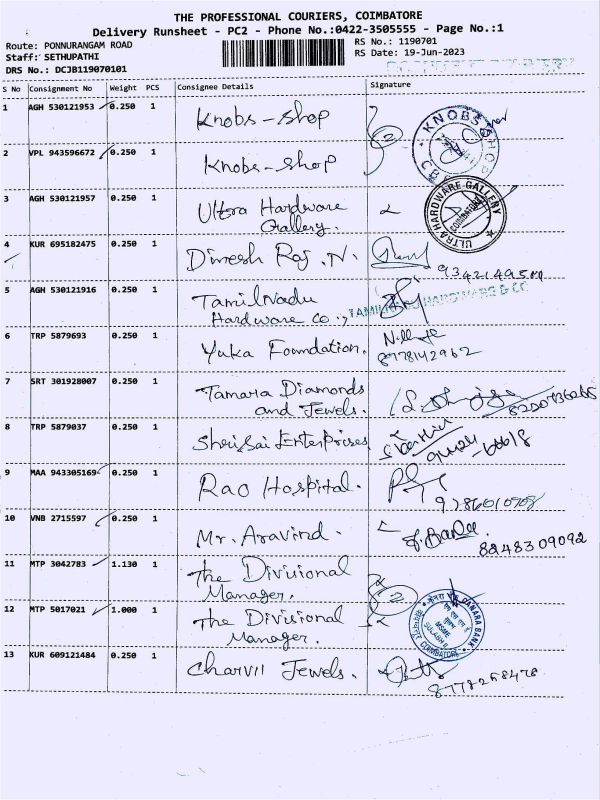 THE PROFESSIONAL COURIERS, COIMBATORE
Delivery Runsheet - PC2 - Phone No.:0422-3505555 - Page No.:1
Route: PONNURANGAM ROAD
RS No.: 1190701
Staff: SETHUPATHI
RS Date: 19-Jun-2023
DRS No.: DCJB119070101
S No Consignment No Weight PCS Consignee Details Signature
1 AGH 530121953 0.250 1 Knobs-shop
KNOBS SHOP
2 VPL 943596672 0.250 1 Knobs-shop
2
3 AGH 530121957 0.250 1 Ultra Hardware
Gallery.
ULTRA HARDWARE GALLERY
COIMBATORE
4 KUR 695182475 0.250 1 Dinesh Raj .N.
5 AGH 530121916 0.250 1 TamilNadu
Hardware Co.,
HARDWARE & CO
6 TRP 5879693 0.250 1 Yuka Foundation.
8778142962
7 SRT 301928007 0.250 1 Tamara Diamonds
and Jewels.
8 TRP 5879037 0.250 1 Shri Sai Enterprises
9 MAA 943305169 0.250 1 Rao Hospital.
10 VNB 2715597 0.250 1 Mr. Aravind.
8248309092
11 MTP 3042783 1.130 1 The Divisional
Manager.
2
12 MTP 5017021 1.000 1 The Divisional
Manager.
CANARA BANK
MSME
SULABH
COIMBATORE
13 KUR 609121484 0.250 1 Charvii Jewels.
8778268478